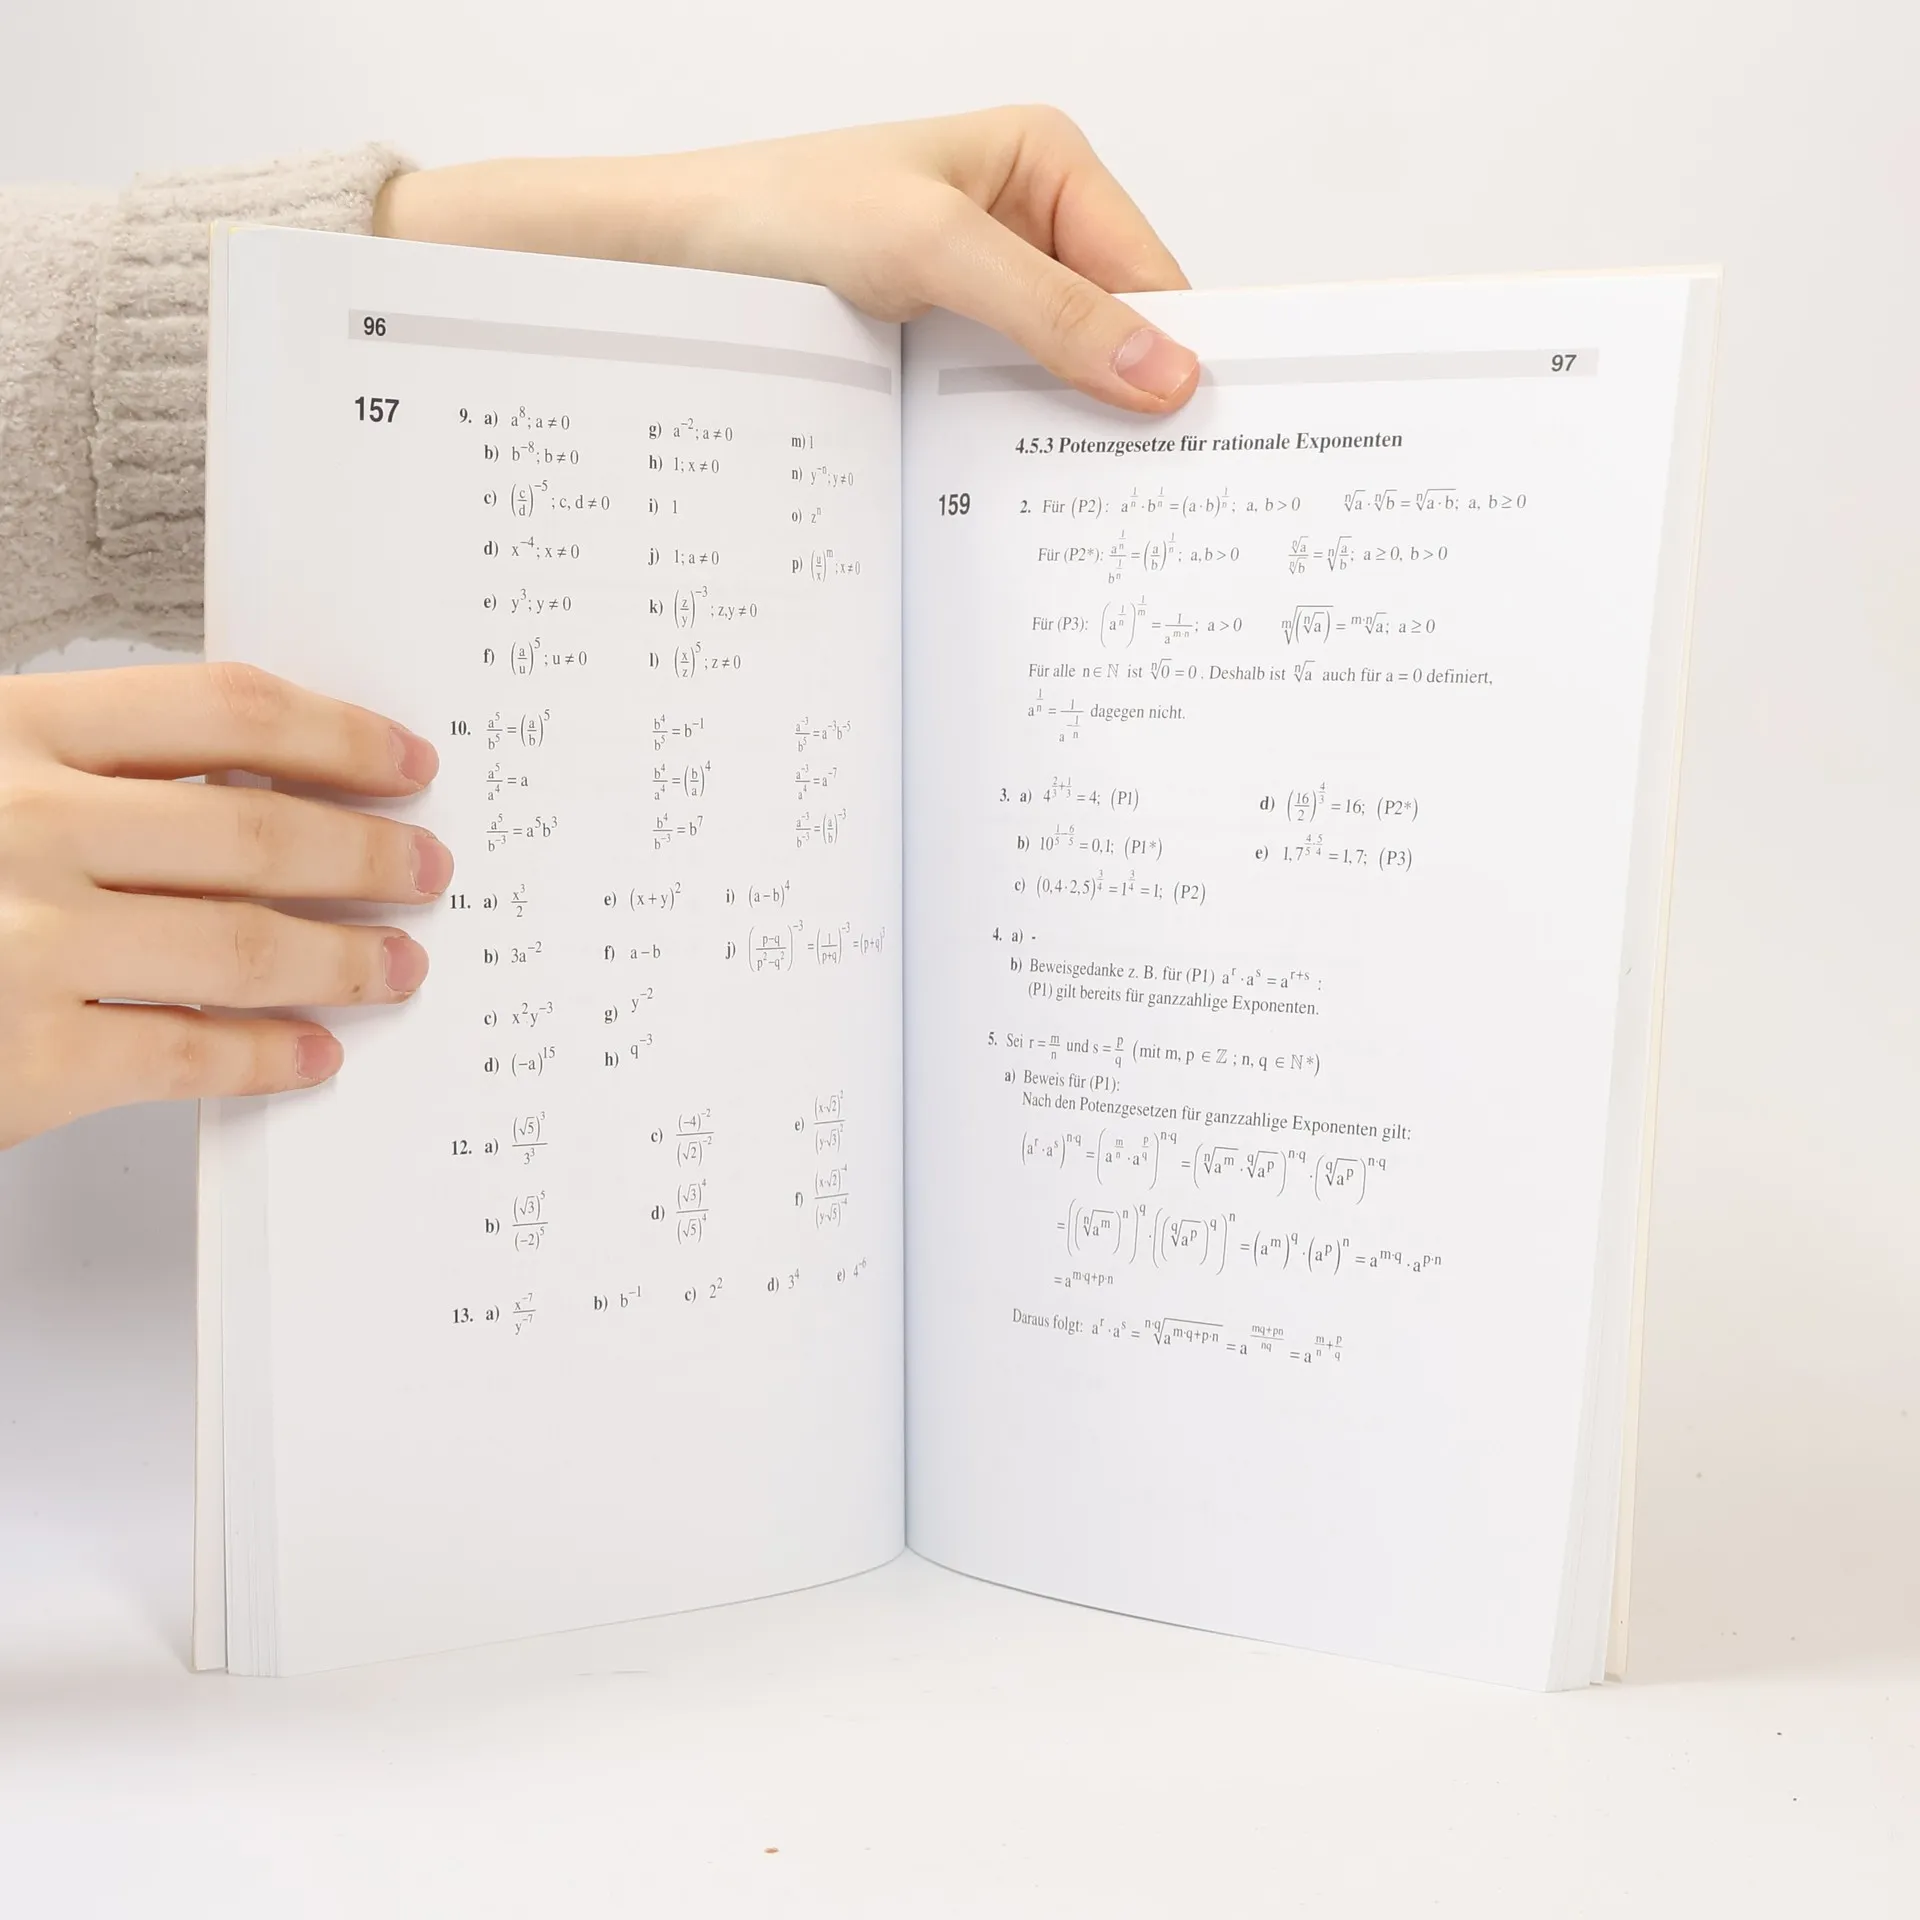 96
157
9. a) a⁸; a ≠ 0
g) a⁻²; a ≠ 0
m) 1
b) b⁻⁸; b ≠ 0
h) 1; x ≠ 0
n) y⁻ⁿ; y ≠ 0
c) (c/d)⁻⁵; c, d ≠ 0
i) 1
o) zⁿ
d) x⁻⁴; x ≠ 0
j) 1; a ≠ 0
p) (u/x)ᵐ; x ≠ 0
e) y³; y ≠ 0
k) (z/y)⁻³; z,y ≠ 0
f) (a/u)⁵; u ≠ 0
l) (x/z)⁵; z ≠ 0
10. a⁵/b⁵ = (a/b)⁵ b⁴/b⁵ = b⁻¹ a⁻³/b⁵ = a⁻³b⁻⁵
a⁵/a⁴ = a b⁴/a⁴ = (b/a)⁴ a⁻³/a⁴ = a⁻⁷
a⁵/b⁻³ = a⁵b³ b⁴/b⁻³ = b⁷ a⁻³/b⁻³ = (a/b)⁻³
11. a) x³/2 e) (x+y)² i) (a−b)⁴
b) 3a⁻² f) a−b j) ((p−q)/(p²−q²))⁻³ = (1/(p+q))⁻³ = (p+q)³
c) x²y⁻³ g) y⁻²
d) (−a)¹⁵ h) q⁻³
12. a) (√5)³/3³ c) (−4)⁻²/(√2)⁻² e) (x·√2)²/(y·√3)²
b) (√3)⁵/(−2)⁵ d) (√3)⁴/(√5)⁴ f) (x·√2)⁻⁴/(y·√5)⁻⁴
13. a) x⁻⁷/y⁻⁷ b) b⁻¹ c) 2² d) 3⁴ e) 4⁻⁶
97
4.5.3 Potenzgesetze für rationale Exponenten
159
2. Für (P2): a^(1/n) · b^(1/n) = (a·b)^(1/n); a, b > 0 ⁿ√a · ⁿ√b = ⁿ√(a·b); a, b ≥ 0
Für (P2*): a^(1/n)/b^(1/n) = (a/b)^(1/n); a, b > 0 ⁿ√a/ⁿ√b = ⁿ√(a/b); a ≥ 0, b > 0
Für (P3): (a^(1/n))^(1/m) = 1/a^(m·n); a > 0 ᵐ√(ⁿ√a) = ᵐ·ⁿ√a; a ≥ 0
Für alle n ∈ ℕ ist ⁿ√0 = 0. Deshalb ist ⁿ√a auch für a = 0 definiert,
a^(1/n) = 1/a^(−1/n) dagegen nicht.
3. a) 4^(2/3+1/3) = 4; (P1) d) (16/2)^(4/3) = 16; (P2*)
b) 10^(1/5−6/5) = 0,1; (P1*) e) 1,7^(4/5·5/4) = 1,7; (P3)
c) (0,4·2,5)^(3/4) = 1^(3/4) = 1; (P2)
4. a) -
b) Beweisgedanke z. B. für (P1) aʳ · aˢ = aʳ⁺ˢ :
(P1) gilt bereits für ganzzahlige Exponenten.
5. Sei r = m/n und s = p/q (mit m, p ∈ ℤ ; n, q ∈ ℕ*)
a) Beweis für (P1):
Nach den Potenzgesetzen für ganzzahlige Exponenten gilt:
(aʳ · aˢ)^(n·q) = (a^(m/n) · a^(p/q))^(n·q) = (ⁿ√(a^m) · ^q√(a^p))^(n·q) · (^q√(a^p))^(n·q)
= ((ⁿ√(a^m))^n)^q · ((^q√(a^p))^q)^n = (a^m)^q · (a^p)^n = a^(m·q) · a^(p·n)
= a^(m·q+p·n)
Daraus folgt: aʳ · aˢ = ^(n·q)√(a^(m·q+p·n)) = a^((mq+pn)/nq) = a^(m/n+p/q)